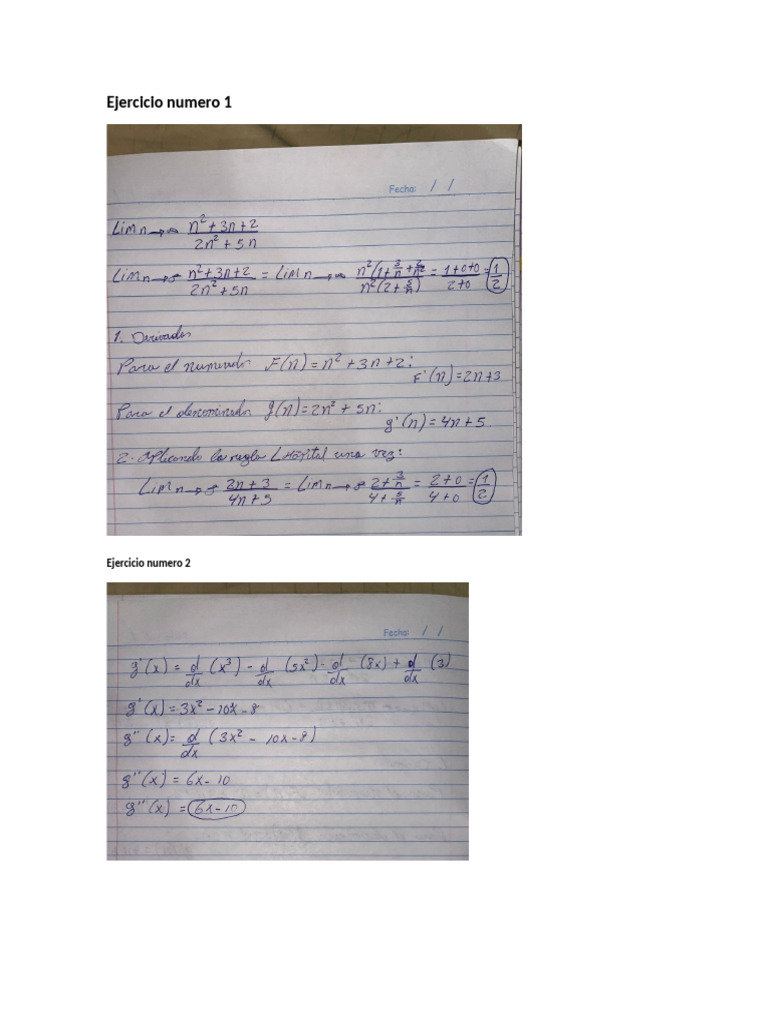 Ejercicio numero 1
Fecha: / /
Lim n→∞ n²+3n+2 / 2n²+5n
Lim n→∞ n²+3n+2 / 2n²+5n = Lim n→∞ n²(1+3/n+2/n²) / n²(2+5/n) = 1+0+0 / 2+0 = 1/2
1. Derivadas
Para el numerador F(n)=n²+3n+2:
F'(n)=2n+3
Para el denominador g(n)=2n²+5n:
g'(n)=4n+5.
2. Aplicando la regla L Hôpital una vez:
Lim n→∞ 2n+3 / 4n+5 = Lim n→∞ 2+3/n / 4+5/n = 2+0 / 4+0 = 1/2
Ejercicio numero 2
Fecha: / /
g'(x) = d/dx (x³) - d/dx (5x²) - d/dx (8x) + d/dx (3)
g'(x) = 3x²-10x-8
g''(x) = d/dx (3x² - 10x-8)
g''(x) = 6x-10
g''(x) = 6x-10